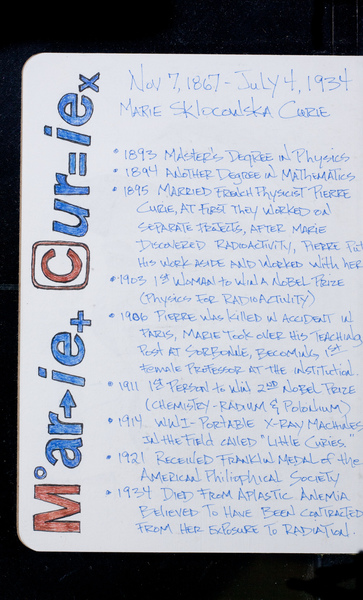 M°ar→ie+ Cur=iex
Nov 7, 1867 - July 4, 1934
Marie Sklocowska Curie
• 1893 Master's Degree in Physics
• 1894 Another Degree in Mathematics
• 1895 Married French Physicist Pierre
Curie, at first they worked on
separate projects, after Marie
discovered radioactivity, Pierre Put
his work aside and worked with her
• 1903 1st Woman to win a Nobel Prize
(Physics for Radioactivity)
• 1906 Pierre was killed in accident in
Paris, Marie took over his teaching
post at Sorbonne, becoming 1st
female professor at the institution.
• 1911 1st Person to win 2nd Nobel Prize
(Chemistry-Radium & Polonium)
• 1914 WWI-Portable X-Ray Machines
in the field called "Little Curies."
• 1921 Received Franklin Medal of the
American Philiophical Society
• 1934 Died from Aplastic Anemia
Believed to have been contracted
from her exposure to radiation.